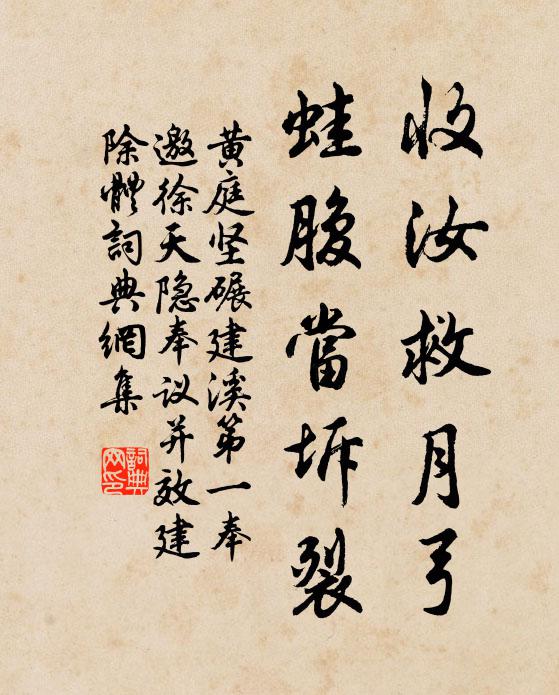 收汝救月弓
蛙腹當坼裂
黄庭坚碾建溪第一奉
邀徐天隐奉议并效建
除體詞典網集
詞典
网印